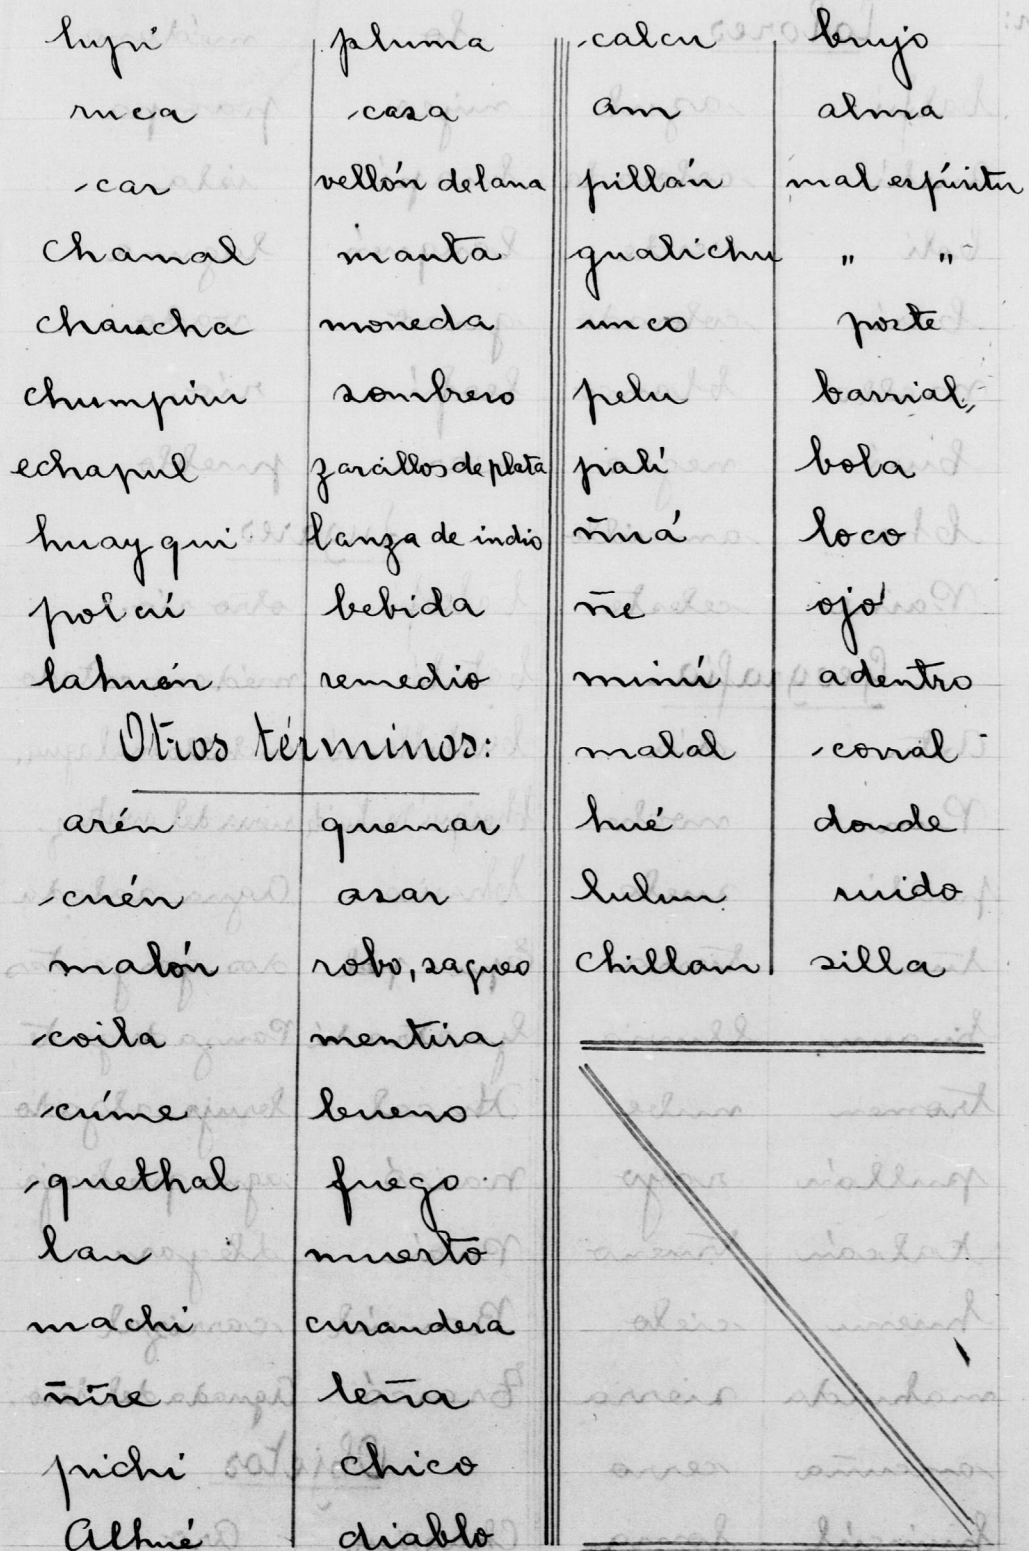 lupi pluma
ruca casa
car vellón de lana
chamal manta
chaucha moneda
chumpiru sombrero
echapul zarcillos de plata
huayqui lanza de indio
polcú bebida
lahuén remedio
Otros términos:
arén quemar
cuén asar
malón robo, saqueo
coila mentira
cúme bueno
quethal fuego
lau muerto
machi curandera
ñire leña
pichi chico
Alhué diablo
calcu brujo
am alma
pillán mal espíritu
gualichu " "
unco poste
pelu barrial
palí bola
ñuá loco
ñe ojo
minú adentro
malal corral
hué donde
lulun ruido
chillam silla